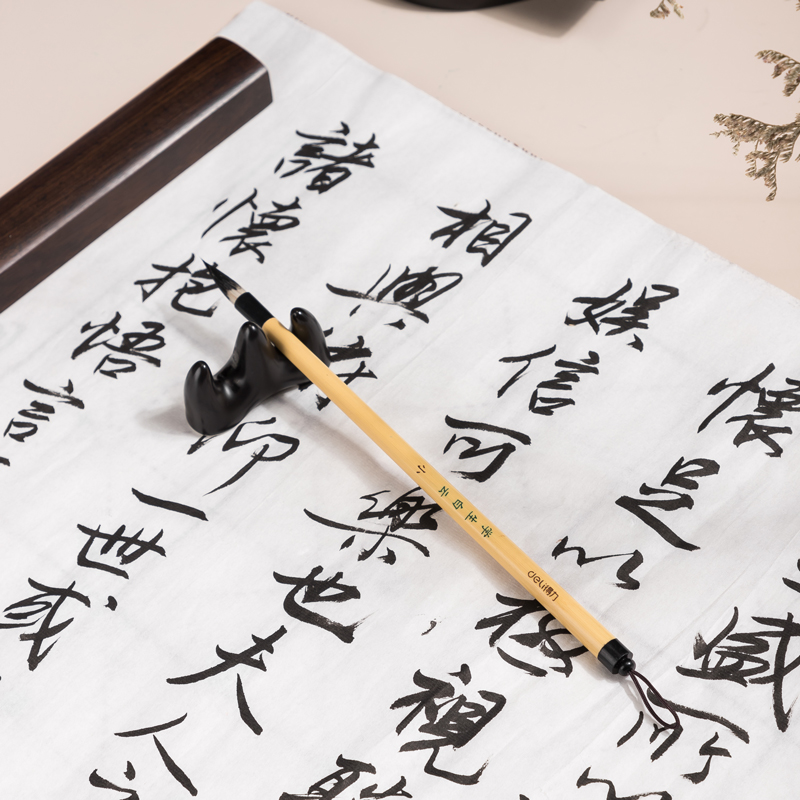 盛所
懷足以極視聽
娛信可樂也夫人
相與俯仰一世或
諸懷抱悟言
学生白云小
deli得力